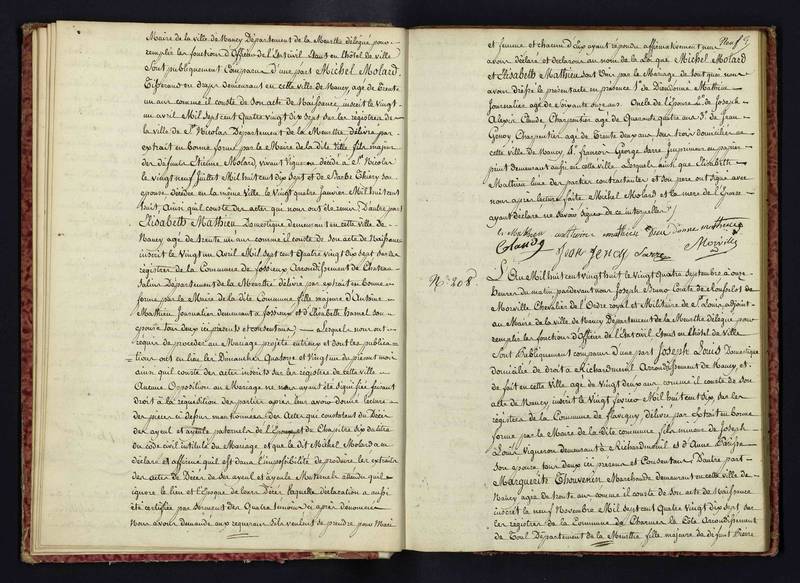 Maire de la ville de Nancy Département de la Meurthe délégué pour
remplir les fonctions d'Officier de l'Etat civil étant en l'hôtel de ville
Sont publiquement Comparus d'une part Michel Molard
Tisserand en draps demeurant en cette ville de Nancy, agé de Trente
un ans comme il conste de son acte de Naissance, inscrit le vingt
un avril Mil Sept cent Quatre vingt dix sept sur les régistres de
la ville de St Nicolas Département de la Meurthe délivré par
extrait en bonne forme par le Maire de la dite Ville, fils majeur
de défunts Etienne Molard, vivant Vigneron décédé à St Nicolas
le vingt neuf Juillet Mil huit cent dix Sept et de Barbe Thiery son
épouse décédée en la même Ville le vingt quatre Janvier Mil huit cent
huit, ainsi qu'il conste des actes qui nous ont été remis. D'autre part
Elisabeth Mathieu Domestique demeurant en cette ville de
Nancy agée de trente un ans comme il conste de son acte de Naissance
inscrit le Vingt un Avril Mil Sept cent Quatre vingt dix sept sur les
régistres de la Commune de Fossieux Arrondissement de Chateau
Salins Département de la Meurthe délivré par extrait en bonne
forme par le Maire de la dite Commune fille majeure d'Antoine
Mathieu Journalier demeurant à Fossieux et d'Elisabeth hamel son
épouse tous deux ici présents et consentans; Lesquels nous ont
réquis de procéder au Mariage projeté entr'eux et dont les publica=
=tions ont eu lieu les Dimanches Quatorze et Vingt un du présent mois
ainsi qu'il conste des actes inscrits sur les régistres de cette ville
Aucune Opposition au Mariage ne nous ayant été signifiée faisant
droit à la réquisition des parties après leur avoir donné lecture
des pièces ci dessus mentionnées des Actes qui constatent les Décès
des ayeul et ayeule paternels de l'Epouse et du Chapitre six du titre
du code civil intitulé du Mariage et que le dit Michel Molard a
déclaré et affirmé qu'il est dans l'impossibilité de produire les extraits
des actes de Décès de ses ayeul et ayeule Maternels attendu qu'il
ignore le lieu et l'époque de leurs Décès laquelle déclaration a aussi
été certifiée par serment des Quatre témoins ci après dénommés
Nous avons demandé aux requérans s'ils veulent se prendre pour Mari
Neuf
et femme et chacun d'eux ayant répondu affirmativement nous
avons déclaré et déclarons au nom de la Loi que Michel Molard
et Elisabeth Mathieu sont Unis par le Mariage de tout quoi nous
avons dressé le présent acte en présence 1° de Dieudonné Mathieu
Journalier agé de soixante onze ans Oncle de l'épouse 2° de Joseph
Alexis Claude Charpentier agé de Quarante quatre ans 3° de Jean
Gency Charpentier agé de Trente deux ans tous trois domiciliés en
cette ville de Nancy, 4° françois George Sarre Imprimeur en papiers
peints demeurant aussi en cette ville. Lesquels ainsi que Elisabeth
Mathieu l'une des parties contractantes et son père ont signé avec
nous après lecture faite Michel Molard et la mère de l'Epouse
ayant déclaré ne savoir signer de ce interpellés /.
e Mathieu mathieu Dieu Donne mathieu
Jean Jency Sarre Morville
N° 208.
L'An Mil huit cent vingt huit le Vingt Quatre Septembre à onze
heures du matin pardevant nous Joseph Bruno Comte de
Morville Chevalier de l'Ordre royal et Militaire de St Louis, adjoint
au Maire de la ville de Nancy Département de la Meurthe délégué pour
remplir les fonctions d'Officier de l'Etat civil étant en l'hôtel de Ville
Sont Publiquement comparus d'une part Joseph Louis Domestique
domicilié de droit à Richardménil Arrondissement de Nancy, et
de fait en cette ville agé de Vingt deux ans comme il conste de son
acte de Nancy inscrit le Vingt Mil huit cent six, sur les
régistres de la Commune de flavigny, délivré par Extrait en bonne
forme par le Maire de la dite commune, fils mineur de Joseph
Louis Vigneron demeurant à Richardménil et d'Anne
son épouse tous deux ici présens et Consentans; D'autre part
Marguerite Thouvenin Marchande demeurant en cette ville de
Nancy agée de trente ans comme il conste de son acte de Naissance
inscrit le neuf Novembre Mil sept cent Quatre vingt dix sept sur
les régistres de la Commune de Charmes la Côte Arrondissement
de Toul Département de la Meurthe fille majeure de défunt Pierre